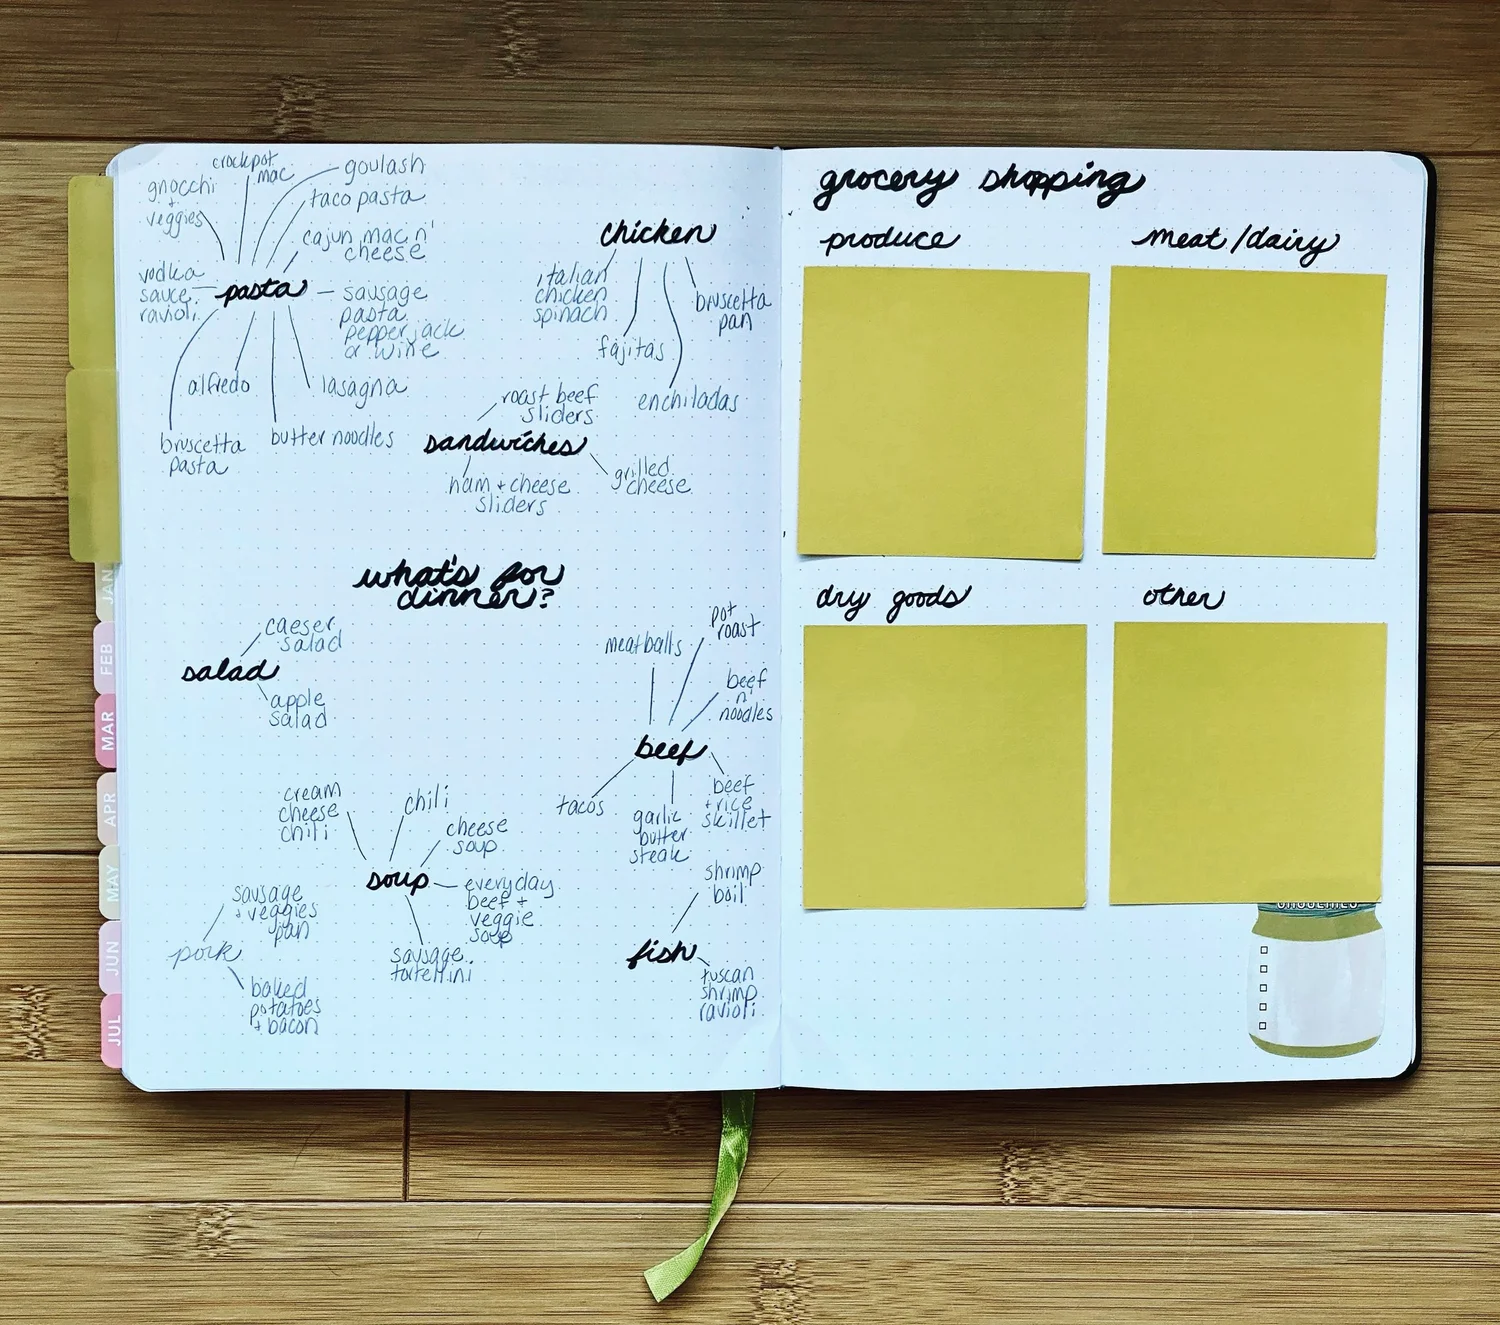 crockpot
mac
goulash
gnocchi
+
veggies
taco pasta
cajun mac n'
cheese
vodka
sauce
ravioli
pasta
sausage
pasta
pepper jack
or wine
alfredo
lasagna
bruscetta
pasta
butter noodles
chicken
italian
chicken
spinach
bruscetta
pan
fajitas
enchiladas
roast beef
sliders
sandwiches
ham + cheese
sliders
grilled
cheese
what's for
dinner?
caeser
salad
salad
apple
salad
meatballs
pot
roast
beef
n'
noodles
beef
tacos
garlic
butter
steak
beef
+ rice
skillet
cream
cheese
chili
chili
cheese
soup
soup
everyday
beef +
veggie
soup
sausage
tortellini
sausage
+ veggies
pan
pork
baked
potatoes
+ bacon
shrimp
boil
fish
tuscan
shrimp
ravioli
JAN
FEB
MAR
APR
MAY
JUN
JUL
grocery shopping
produce
meat/dairy
dry goods
other
GROCERIES